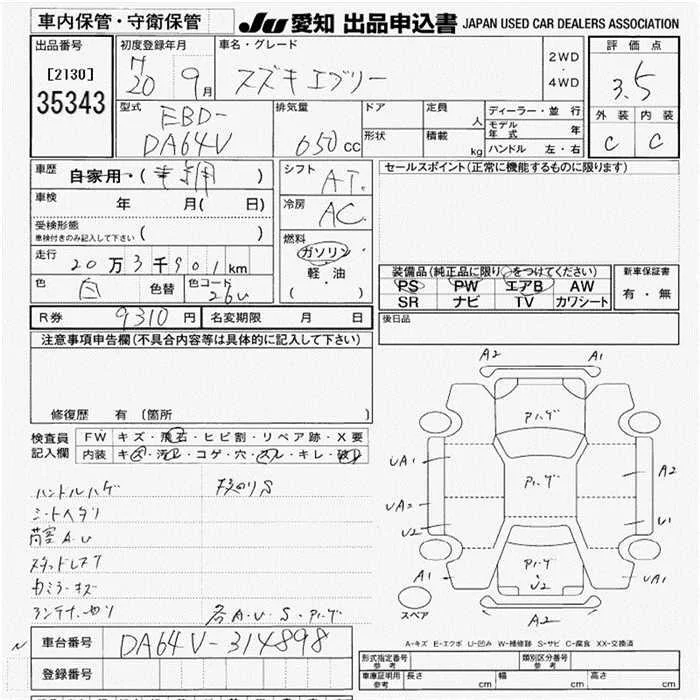 車内保管・守衛保管
JU 愛知 出品申込書 JAPAN USED CAR DEALERS ASSOCIATION
出品番号
[2130]
35343
初度登録年月
H20 9月
車名・グレード
スズキ エブリー
2WD・4WD
評価点
3.5
外装 内装
C C
型式
EBD-
DA64V
排気量
650cc
ドア
形状
定員 人
積載 kg
ディーラー・並行
モデル年式 年
ハンドル 左・右
車歴
自家用・( )
車検 年 月( 日)
受検形態
車検付きのみ記入して下さい ( )
走行 20万3千901km
色 白 色替 色コード 26U
シフト AT.
冷房 AC
燃料
ガソリン
軽・油
( )
セールスポイント(正常に機能するものに限ります)
装備品(純正品に限り○をつけてください)
PS PW エアB AW
SR ナビ TV カワシート
新車保証書
有・無
R券 9310円 名変期限 月 日
後日品
注意事項申告欄(不具合内容等は具体的に記入して下さい)
修復歴 有 〔箇所 〕
検査員記入欄
FW キズ・飛石・ヒビ割・リペア跡・X要
内装 キズ・汚レ・コゲ・穴・スレ・キレ・破レ
ハンドルハゲ
シートヘタリ
荷室A.U
スタッドレス
カガミ・キズ
アンテナ・曲り
各A・U・S・Pハゲ
A2 A1
Pハゲ
UA1
Pハゲ
A2
UA2
U2
U1
Pハゲ
U2
A1
UA1
A2
スペア
A-キズ E-エクボ U-凹み W-補修跡 S-サビ C-腐食 XX-交換済
N
車台番号 DA64V-314898
登録番号
形式指定番号 参考
類別区分番号 参考
車庫証明用 参考 長さ cm 幅 cm 高さ cm